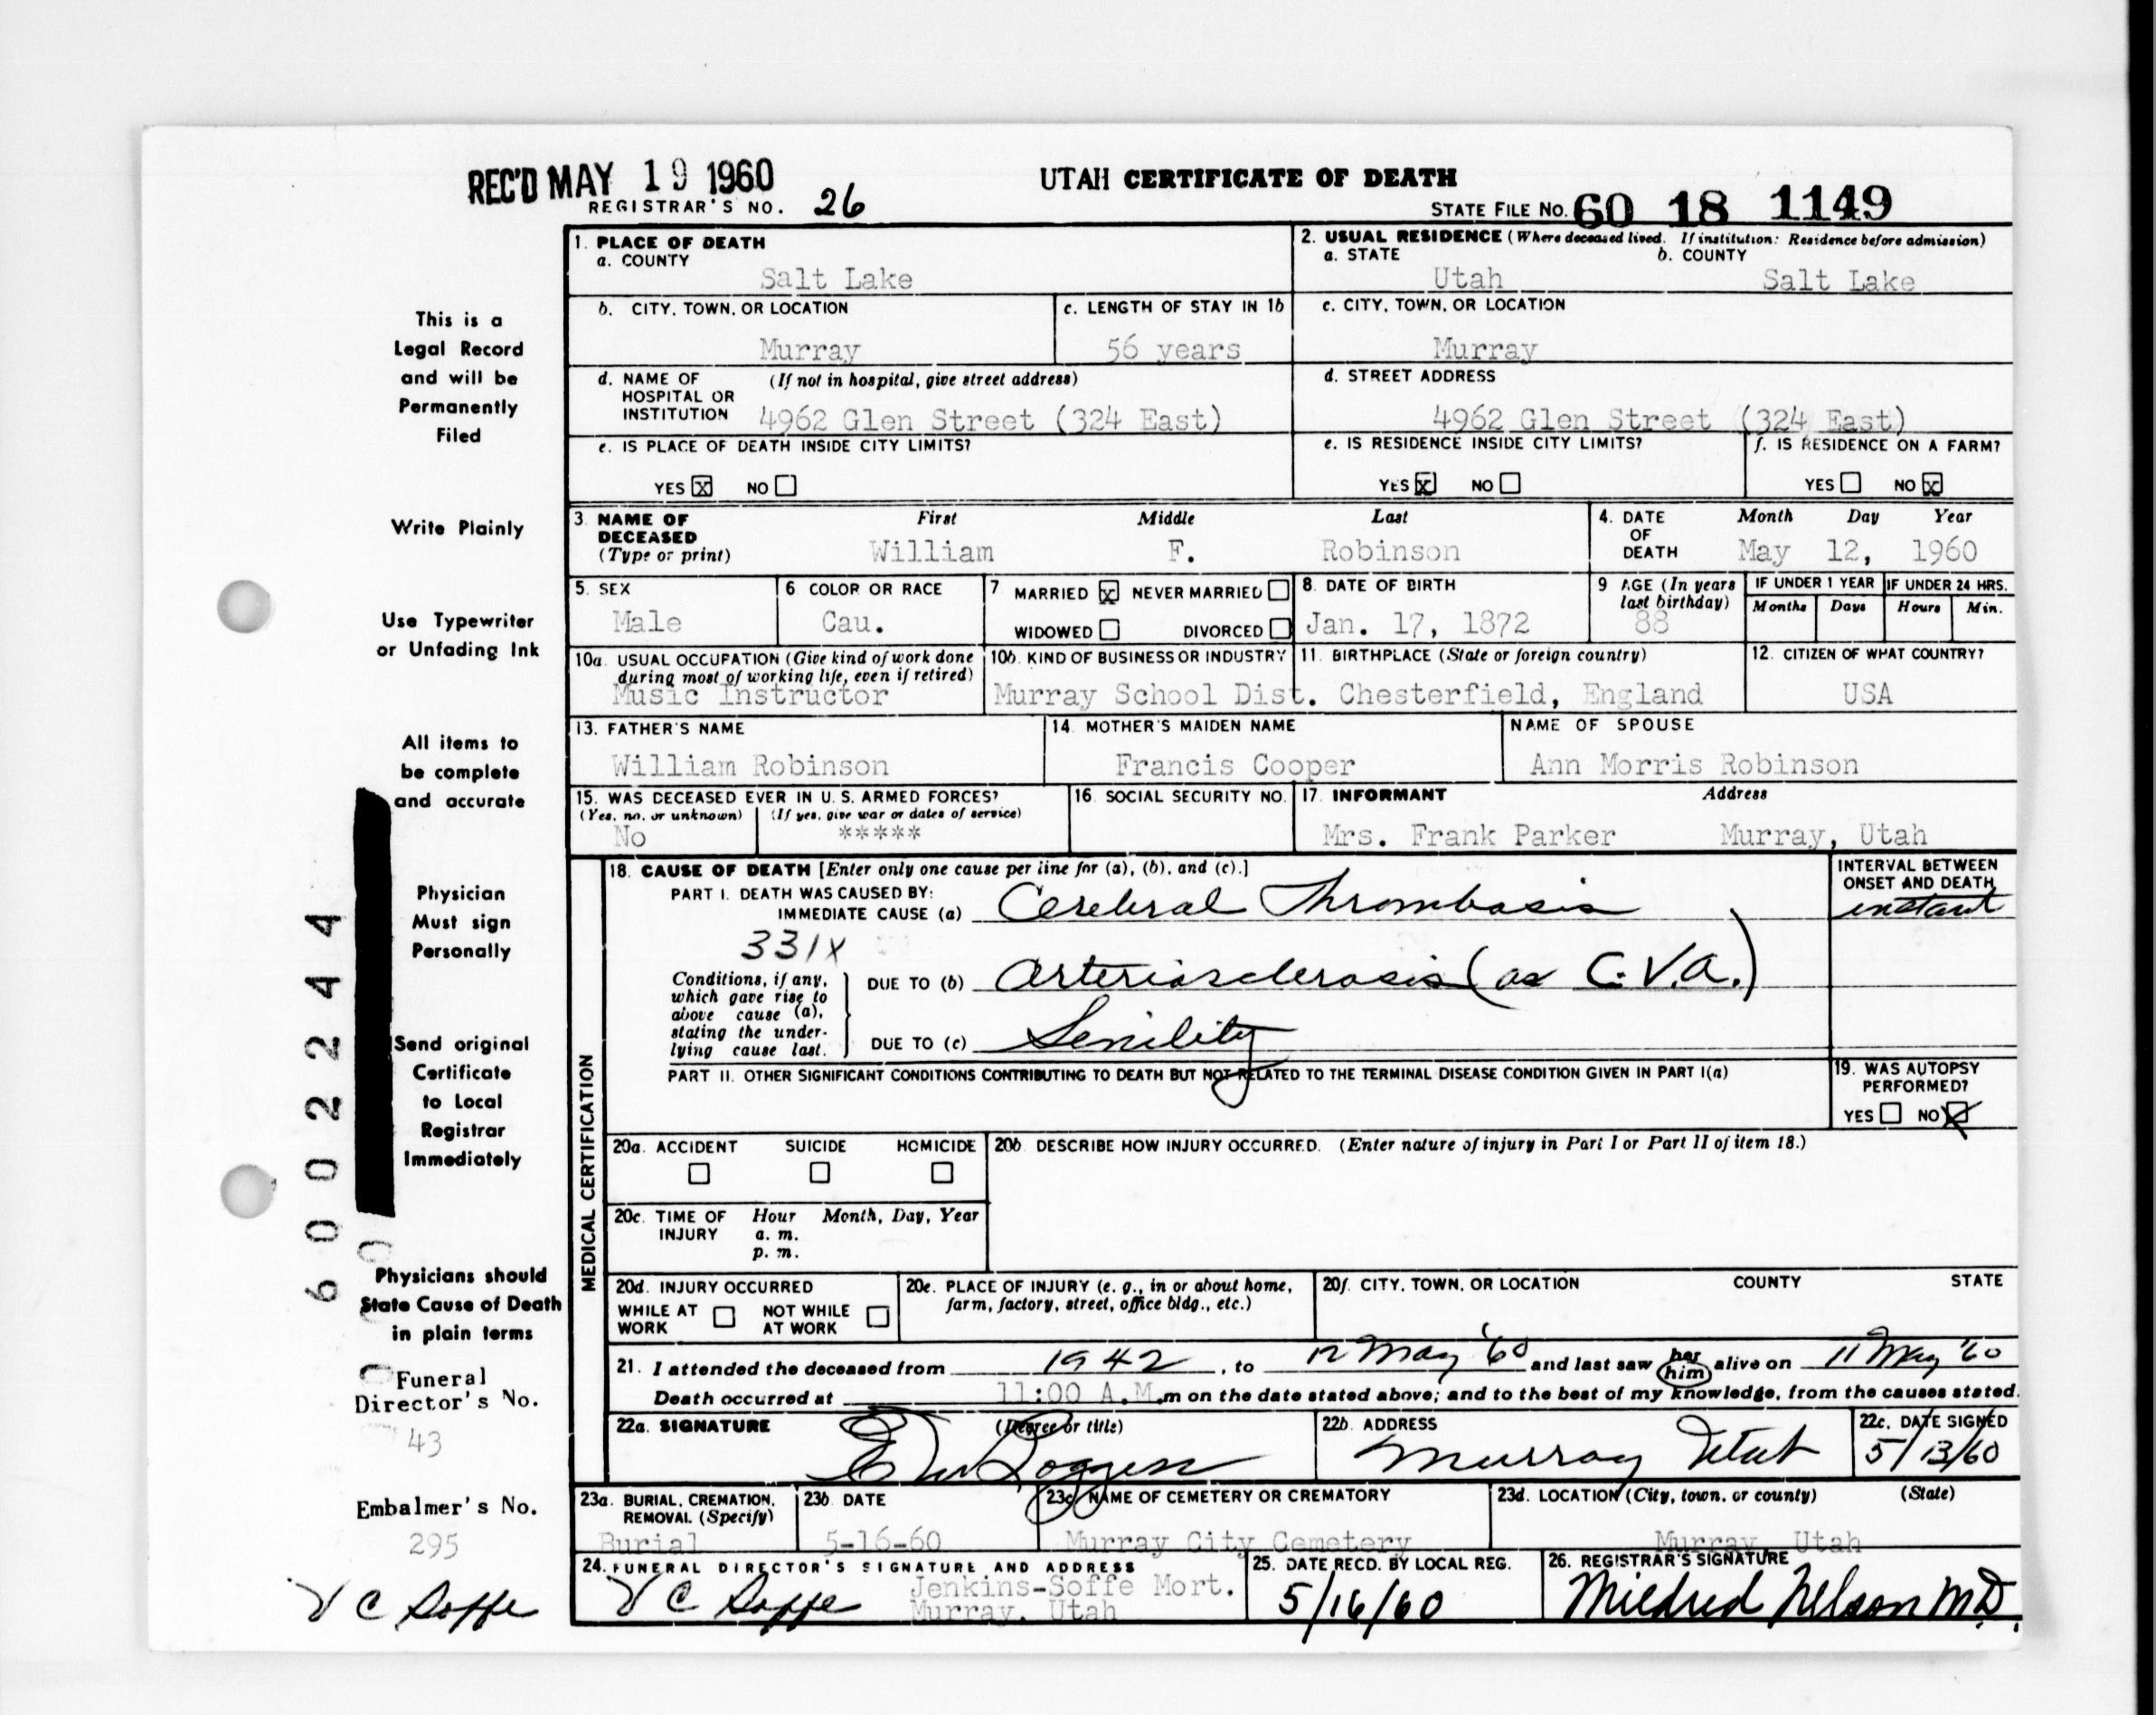 REC'D MAY 19 1960
UTAH CERTIFICATE OF DEATH
REGISTRAR'S NO. 26
STATE FILE NO. 60 18 1149
This is a
Legal Record
and will be
Permanently
Filed
Write Plainly
Use Typewriter
or Unfading Ink
All items to
be complete
and accurate
Physician
Must sign
Personally
Send original
Certificate
to Local
Registrar
Immediately
Physicians should
State Cause of Death
in plain terms
Funeral
Director's No.
43
Embalmer's No.
295
V C Soffe
6002244
1. PLACE OF DEATH
a. COUNTY
Salt Lake
2. USUAL RESIDENCE (Where deceased lived. If institution: Residence before admission)
a. STATE b. COUNTY
Utah Salt Lake
b. CITY, TOWN, OR LOCATION
Murray
c. LENGTH OF STAY IN 1b
56 years
c. CITY, TOWN, OR LOCATION
Murray
d. NAME OF (If not in hospital, give street address)
HOSPITAL OR
INSTITUTION 4962 Glen Street (324 East)
d. STREET ADDRESS
4962 Glen Street (324 East)
e. IS PLACE OF DEATH INSIDE CITY LIMITS?
YES X NO
e. IS RESIDENCE INSIDE CITY LIMITS?
YES X NO
f. IS RESIDENCE ON A FARM?
YES NO X
3. NAME OF DECEASED (Type or print)
First Middle Last
William F. Robinson
4. DATE OF DEATH
Month Day Year
May 12, 1960
5. SEX
Male
6 COLOR OR RACE
Cau.
7 MARRIED X NEVER MARRIED
WIDOWED DIVORCED
8. DATE OF BIRTH
Jan. 17, 1872
9 AGE (In years
last birthday)
88
IF UNDER 1 YEAR
Months Days
IF UNDER 24 HRS.
Hours Min.
10a. USUAL OCCUPATION (Give kind of work done
during most of working life, even if retired)
Music Instructor
10b. KIND OF BUSINESS OR INDUSTRY
Murray School Dist.
11. BIRTHPLACE (State or foreign country)
Chesterfield, England
12. CITIZEN OF WHAT COUNTRY?
USA
13. FATHER'S NAME
William Robinson
14. MOTHER'S MAIDEN NAME
Francis Cooper
NAME OF SPOUSE
Ann Morris Robinson
15. WAS DECEASED EVER IN U. S. ARMED FORCES?
(Yes, no, or unknown) (If yes, give war or dates of service)
No *****
16. SOCIAL SECURITY NO.
17. INFORMANT Address
Mrs. Frank Parker Murray, Utah
MEDICAL CERTIFICATION
18. CAUSE OF DEATH [Enter only one cause per line for (a), (b), and (c).]
PART I. DEATH WAS CAUSED BY:
IMMEDIATE CAUSE (a) Cerebral Thrombosis
331X
Conditions, if any,
which gave rise to
above cause (a),
stating the under-
lying cause last.
DUE TO (b) Arteriosclerosis (as C.V.A.)
DUE TO (c) Senility
INTERVAL BETWEEN
ONSET AND DEATH
instant
PART II. OTHER SIGNIFICANT CONDITIONS CONTRIBUTING TO DEATH BUT NOT RELATED TO THE TERMINAL DISEASE CONDITION GIVEN IN PART I(a)
19. WAS AUTOPSY
PERFORMED?
YES NO X
20a. ACCIDENT SUICIDE HOMICIDE
20b DESCRIBE HOW INJURY OCCURRED. (Enter nature of injury in Part I or Part II of item 18.)
20c. TIME OF INJURY
Hour Month, Day, Year
a. m.
p. m.
20d. INJURY OCCURRED
WHILE AT WORK NOT WHILE AT WORK
20e. PLACE OF INJURY (e. g., in or about home,
farm, factory, street, office bldg., etc.)
20f. CITY, TOWN, OR LOCATION COUNTY STATE
21. I attended the deceased from 1942, to 12 May '60 and last saw her him alive on 11 May '60
Death occurred at 11:00 A.M.m on the date stated above; and to the best of my knowledge, from the causes stated.
22a. SIGNATURE (Degree or title)
22b. ADDRESS
Murray Utah
22c. DATE SIGNED
5/13/60
23a. BURIAL, CREMATION,
REMOVAL (Specify)
Burial
23b DATE
5-16-60
23c NAME OF CEMETERY OR CREMATORY
Murray City Cemetery
23d. LOCATION (City, town, or county) (State)
Murray, Utah
24. FUNERAL DIRECTOR'S SIGNATURE AND ADDRESS
V C Soffe Jenkins-Soffe Mort.
Murray, Utah
25. DATE RECD. BY LOCAL REG.
5/16/60
26. REGISTRAR'S SIGNATURE
Mildred Nelson M.D.